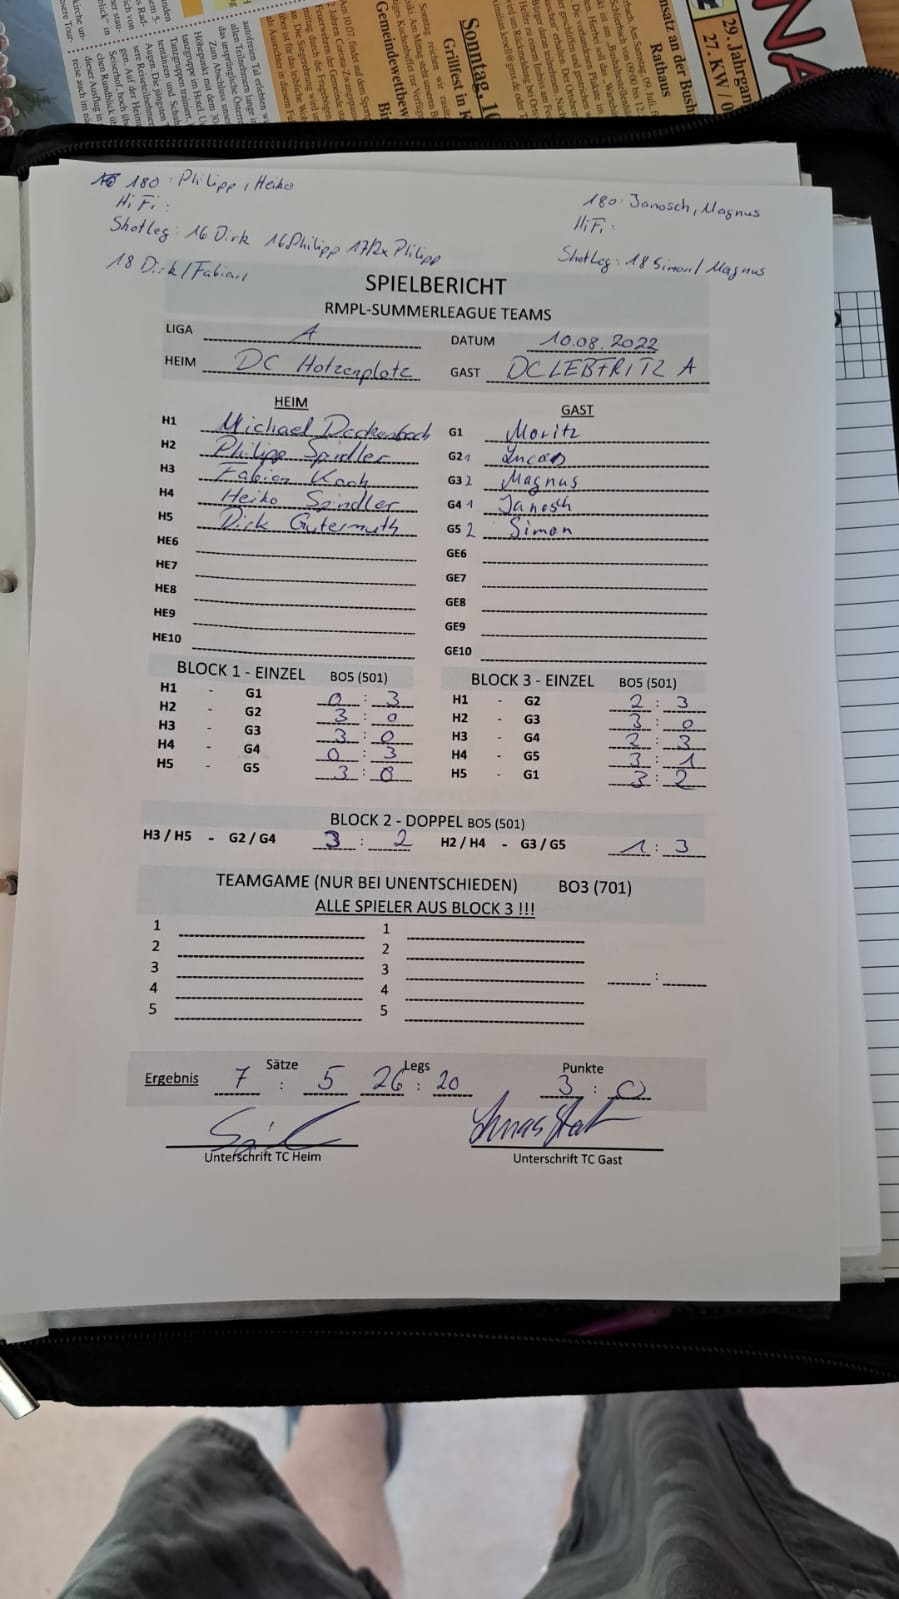 29. Jahrgang
27. KW / 0
nsatz an der Bush
Rathaus
Sonntag, 10
Grillfest in K
Gemeindewettbew
180: Philipp, Heiko
HiFi:
Shotleg: 16 Dirk 16 Philipp 17/2x Philipp
18 Dirk/Fabian
180: Janosch, Magnus
HiFi:
Shotleg: 18 Simon/Magnus
SPIELBERICHT
RMPL-SUMMERLEAGUE TEAMS
LIGA A DATUM 10.08.2022
HEIM DC Hotzenplotz GAST DC LEBTRITZ A
HEIM GAST
H1 Michael Deckenbach G1 Moritz
H2 Philipp Spindler G2 1 Lucas
H3 Fabian Koch G3 2 Magnus
H4 Heiko Spindler G4 1 Janosch
H5 Dirk Gutermuth G5 2 Simon
HE6 GE6
HE7 GE7
HE8 GE8
HE9 GE9
HE10 GE10
BLOCK 1 - EINZEL BO5 (501) BLOCK 3 - EINZEL BO5 (501)
H1 - G1 0 : 3 H1 - G2 2 : 3
H2 - G2 3 : 0 H2 - G3 3 : 0
H3 - G3 3 : 0 H3 - G4 2 : 3
H4 - G4 0 : 3 H4 - G5 3 : 1
H5 - G5 3 : 0 H5 - G1 3 : 2
BLOCK 2 - DOPPEL BO5 (501)
H3 / H5 - G2 / G4 3 : 2 H2 / H4 - G3 / G5 1 : 3
TEAMGAME (NUR BEI UNENTSCHIEDEN) BO3 (701)
ALLE SPIELER AUS BLOCK 3 !!!
1 1
2 2
3 3 :
4 4
5 5
Sätze Legs Punkte
Ergebnis 7 : 5 26 : 20 3 : 0
Unterschrift TC Heim Unterschrift TC Gast